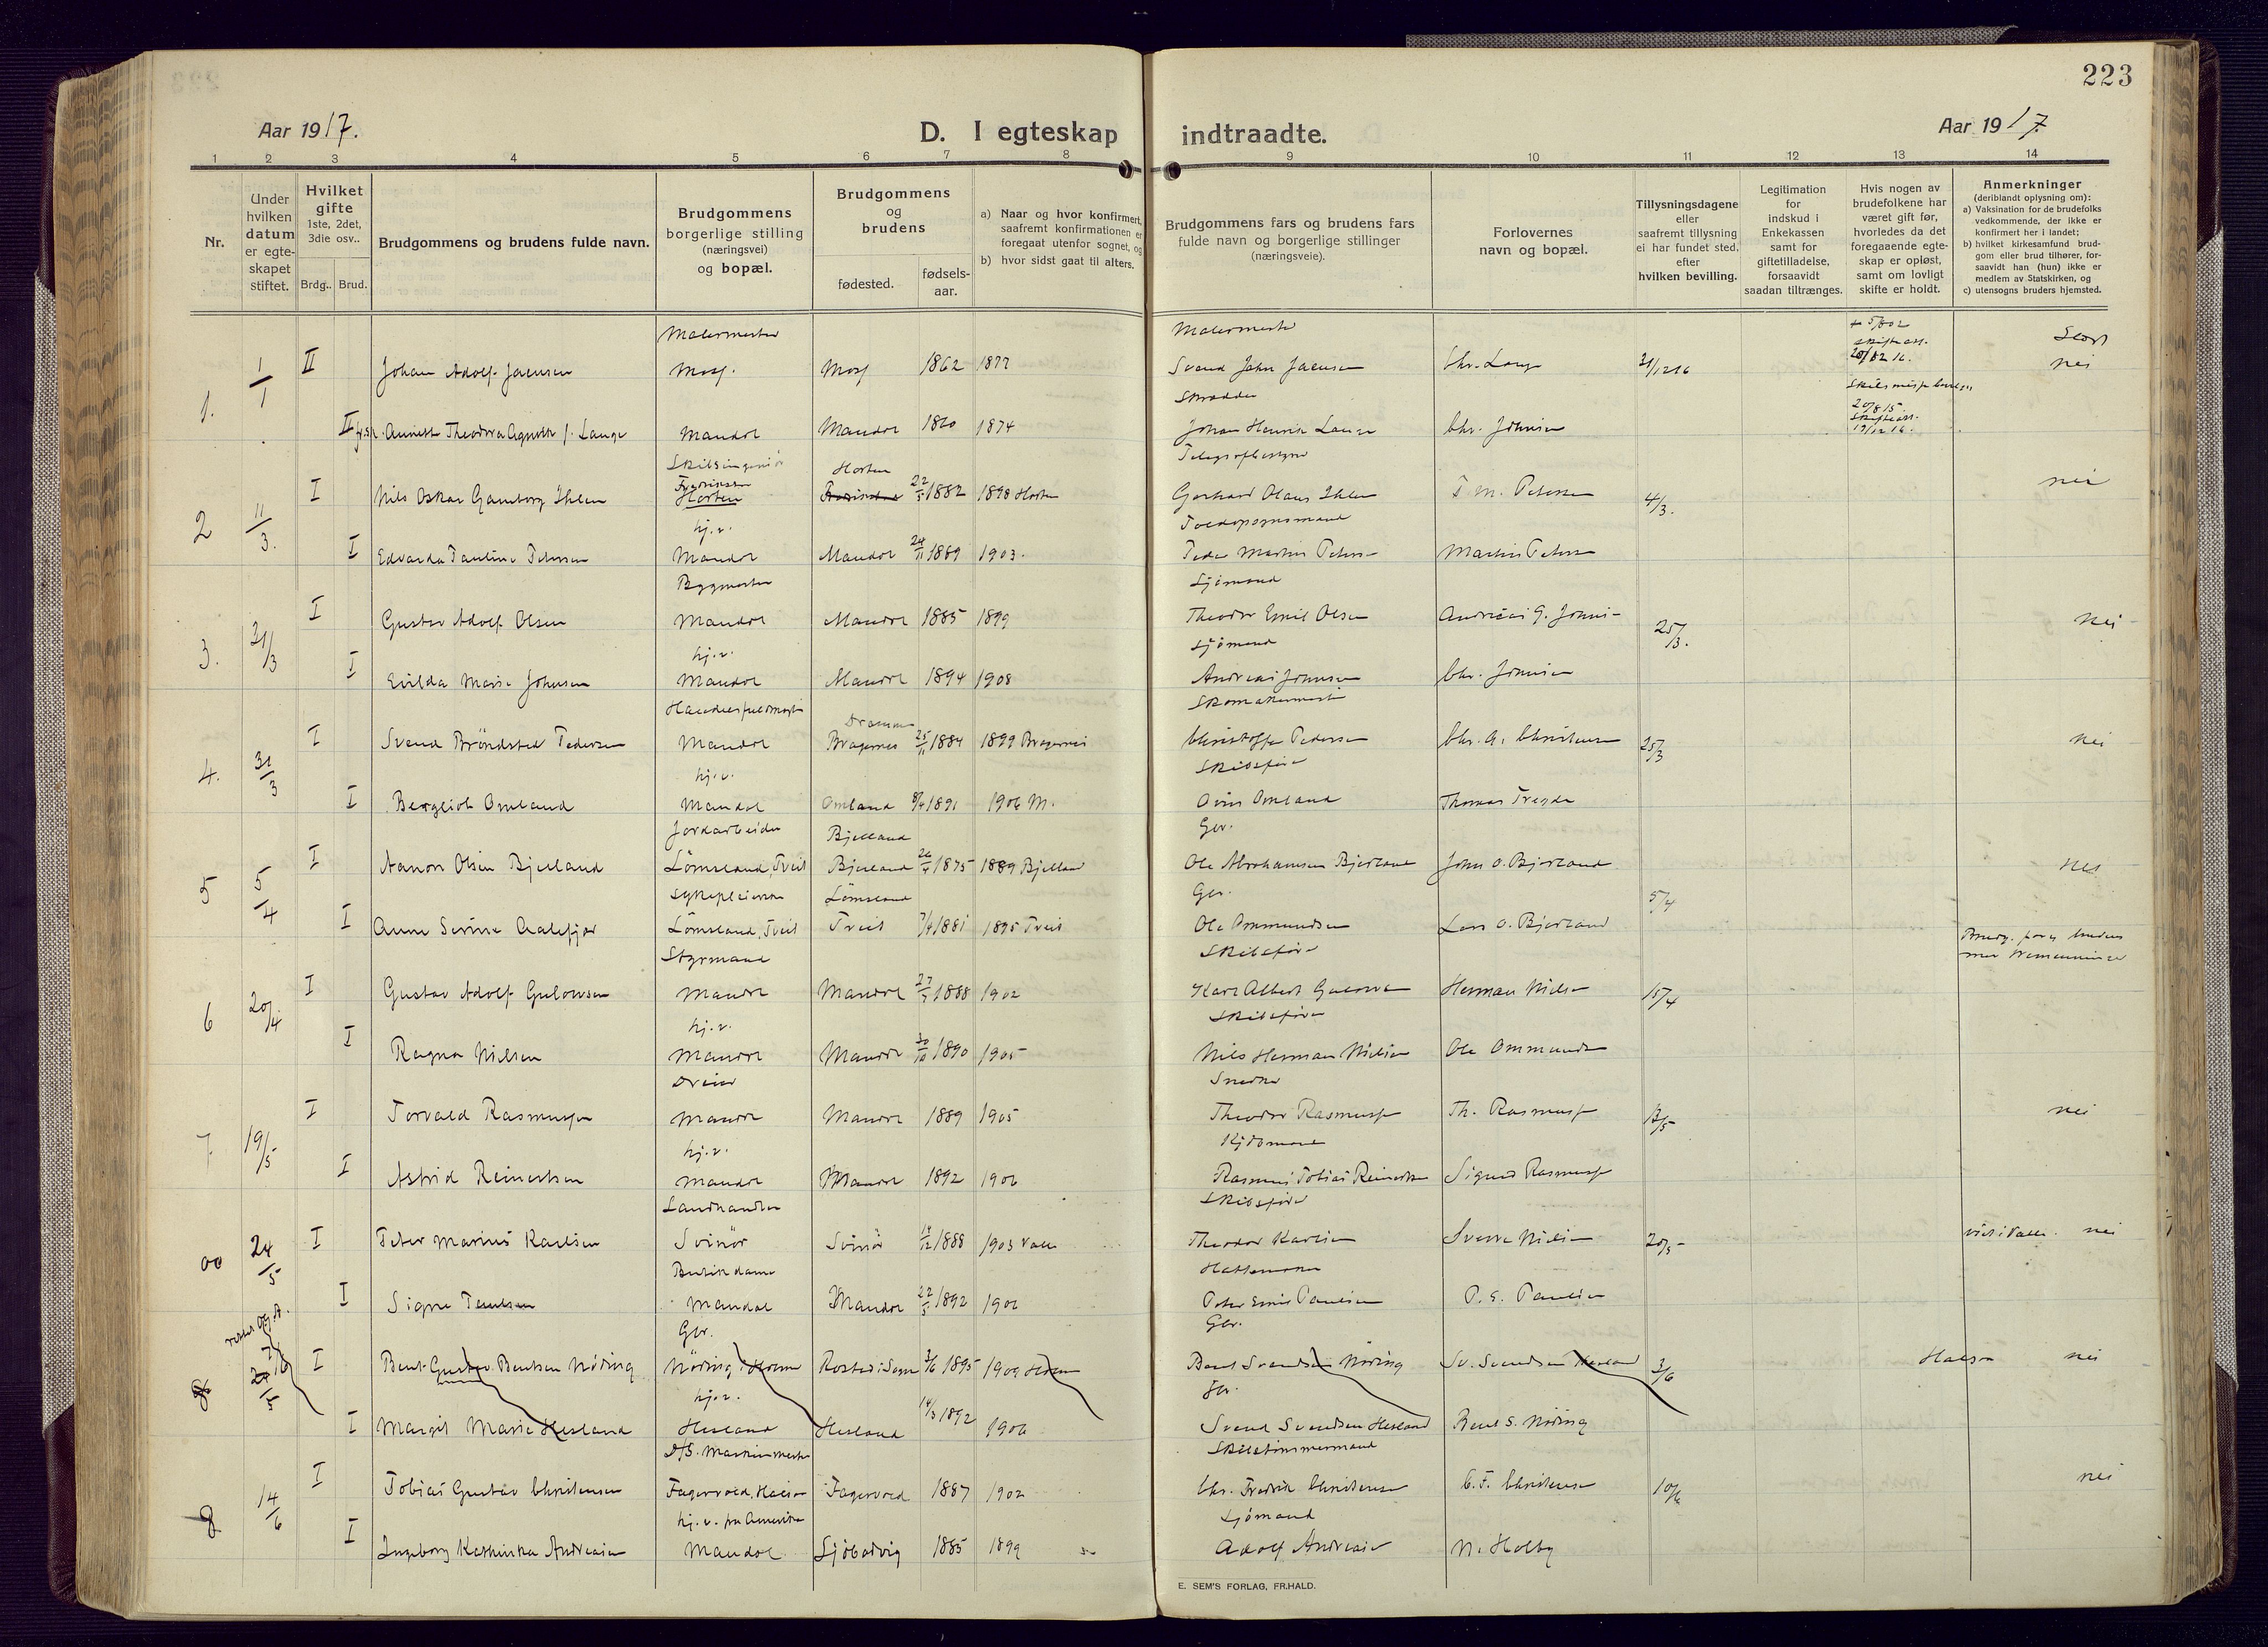 223
Aar 1917.
D. I egteskap indtraadte.
Aar 1917.
1 2 3 4 5 6 7 8 9 10 11 12 13 14
Nr.
Under hvilken datum er egteskapet stiftet.
Hvilket gifte
1ste, 2det, 3die osv..
Brdg.. Brud.
Brudgommens og brudens fulde navn.
Brudgommens borgerlige stilling (næringsvei) og bopæl.
Brudgommens og brudens
fødested.
fødsels-aar.
a) Naar og hvor konfirmert, saafremt konfirmationen er foregaat utenfor sognet, og
b) hvor sidst gaat til alters.
Brudgommens fars og brudens fars fulde navn og borgerlige stillinger (næringsveie).
Forlovernes navn og bopæl.
Tillysningsdagene eller saafremt tillysning ei har fundet sted, efter hvilken bevilling.
Legitimation for indskud i Enkekassen samt for giftetilladelse, forsaavidt saadan tiltrænges.
Hvis nogen av brudefolkene har været gift før, hvorledes da det foregaaende egteskap er opløst, samt om lovligt skifte er holdt.
Anmerkninger
(deriblandt oplysning om):
a) Vaksination for de brudefolks vedkommende, der ikke er konfirmert her i landet;
b) hvilket kirkesamfund brudgom eller brud tilhører, forsaavidt han (hun) ikke er medlem av Statskirken, og
c) utensogns bruders hjemsted.
Malermester Malermester
1. 1/1 II Johan Adolf Jaensen Moss. Moss 1862 1877 Svend John Jaensen Chr. Lange 31/12 16 nei
Skrædder
II Theodora f. Lange Mandal Mandal 1860 1874 Johan Henrik Lange Chr. Johnsen
Skibsingeniør Horten
2 11/3. I Nils Oskar Gamborg Ihlen Horten 22/5 1882 1898 Horten Gerhard Olaus Ihlen P. M. Petersen 4/3. nei
hj.v.
I Edvarda Pauline Petersen Mandal Mandal 24/11 1889 1903. Peder Martin Petersen Martin Petersen
Bygmester Sjømand
3. 31/3 I Gustav Adolf Olsen Mandal Mandal 1885 1899 Theodor Emil Olsen Andreas G. Johnsen 25/3. nei
hj.v. Sjømand
I Evilda Marie Johnsen Mandal Mandal 1894 1908 Andreas Johnsen Chr. Johnsen
Skomakermester
4. 31/3 I Svend Brøndsted Pedersen Mandal Bragernes 25/11 1884 1899 Bragernes Christoffer Pedersen Chr. A. Christensen 25/3 nei
hj.v. Skibsfører
I Bergliot Omland Mandal Omland 8/4 1891 1906 M. Omland Thomas Tregde
Jordarbeider Bjelland Gbr.
5 5/4 I Aanon Olsen Bjelland Lømsland, Tveit Bjelland 26/4 1875 1889 Bjelland Ole Abrahamsen Bjelland John O. Bjelland 5/4 nei
Sykepleierske Lømsland Gbr.
I Anne Serine Aalefjær Lømsland, Tveit Tveit 7/4 1881 1895 Tveit Ole Ommundsen Lars O. Bjelland
Styrmand Skibsfører
6 20/4 I Gustav Adolf Gulowsen Mandal Mandal 1888 1902 Karl Albert Gulowsen Herman Nielsen 15/4
hj.v. Skibsfører
I Ragna Nielsen Mandal Mandal 30/10 1890 1905 Nils Herman Nielsen Ole Ommundsen
Dreier Snedker
7 19/5 I Torvald Rasmussen Mandal Mandal 1889 1905 Theodor Rasmussen Th. Rasmussen 13/5 nei
hj.v.
I Astrid Reinertsen Mandal Mandal 1892 1906 Rasmus Tobias Reinertsen Sigurd Rasmussen
Landhandler Skibsfører
8 24/5 I Peter Marius Karlsen Svinør Svinør 14/12 1888 1903 Valle Theodor Karlsen Sverre Nielsen 20/5 viet i Valle. nei
Butikdame Hattemaker
I Signe Paulsen Mandal Mandal 22/5 1892 1906 Peter Emil Paulsen P. E. Paulsen
Gbr. Gbr.
I Bent Gustav Bentsen Nøding Nøding, Holum 3/6 1895 1909 Holum Bent Svendsen Nøding Sv. Svendsen Hesland 3/6 nei
hj.v. Gbr.
I Margit Marie Hesland Hesland Hesland 14/3 1892 1906 Svend Svendsen Hesland Bent S. Nøding
D/S. Maskinmester Skibstømmermand
8 14/6 I Tobias Gustav Christensen Fagervold, Fagervold 1887 1902 Chr. Fredrik Christensen C. F. Christensen 10/6 nei
hj.v. fra Amerika Sjømand
I Ingeborg Kathinka Andreasen Mandal 1885 1899 Adolf Andreasen N. Holby
E. SEM'S FORLAG, FR.HALD.